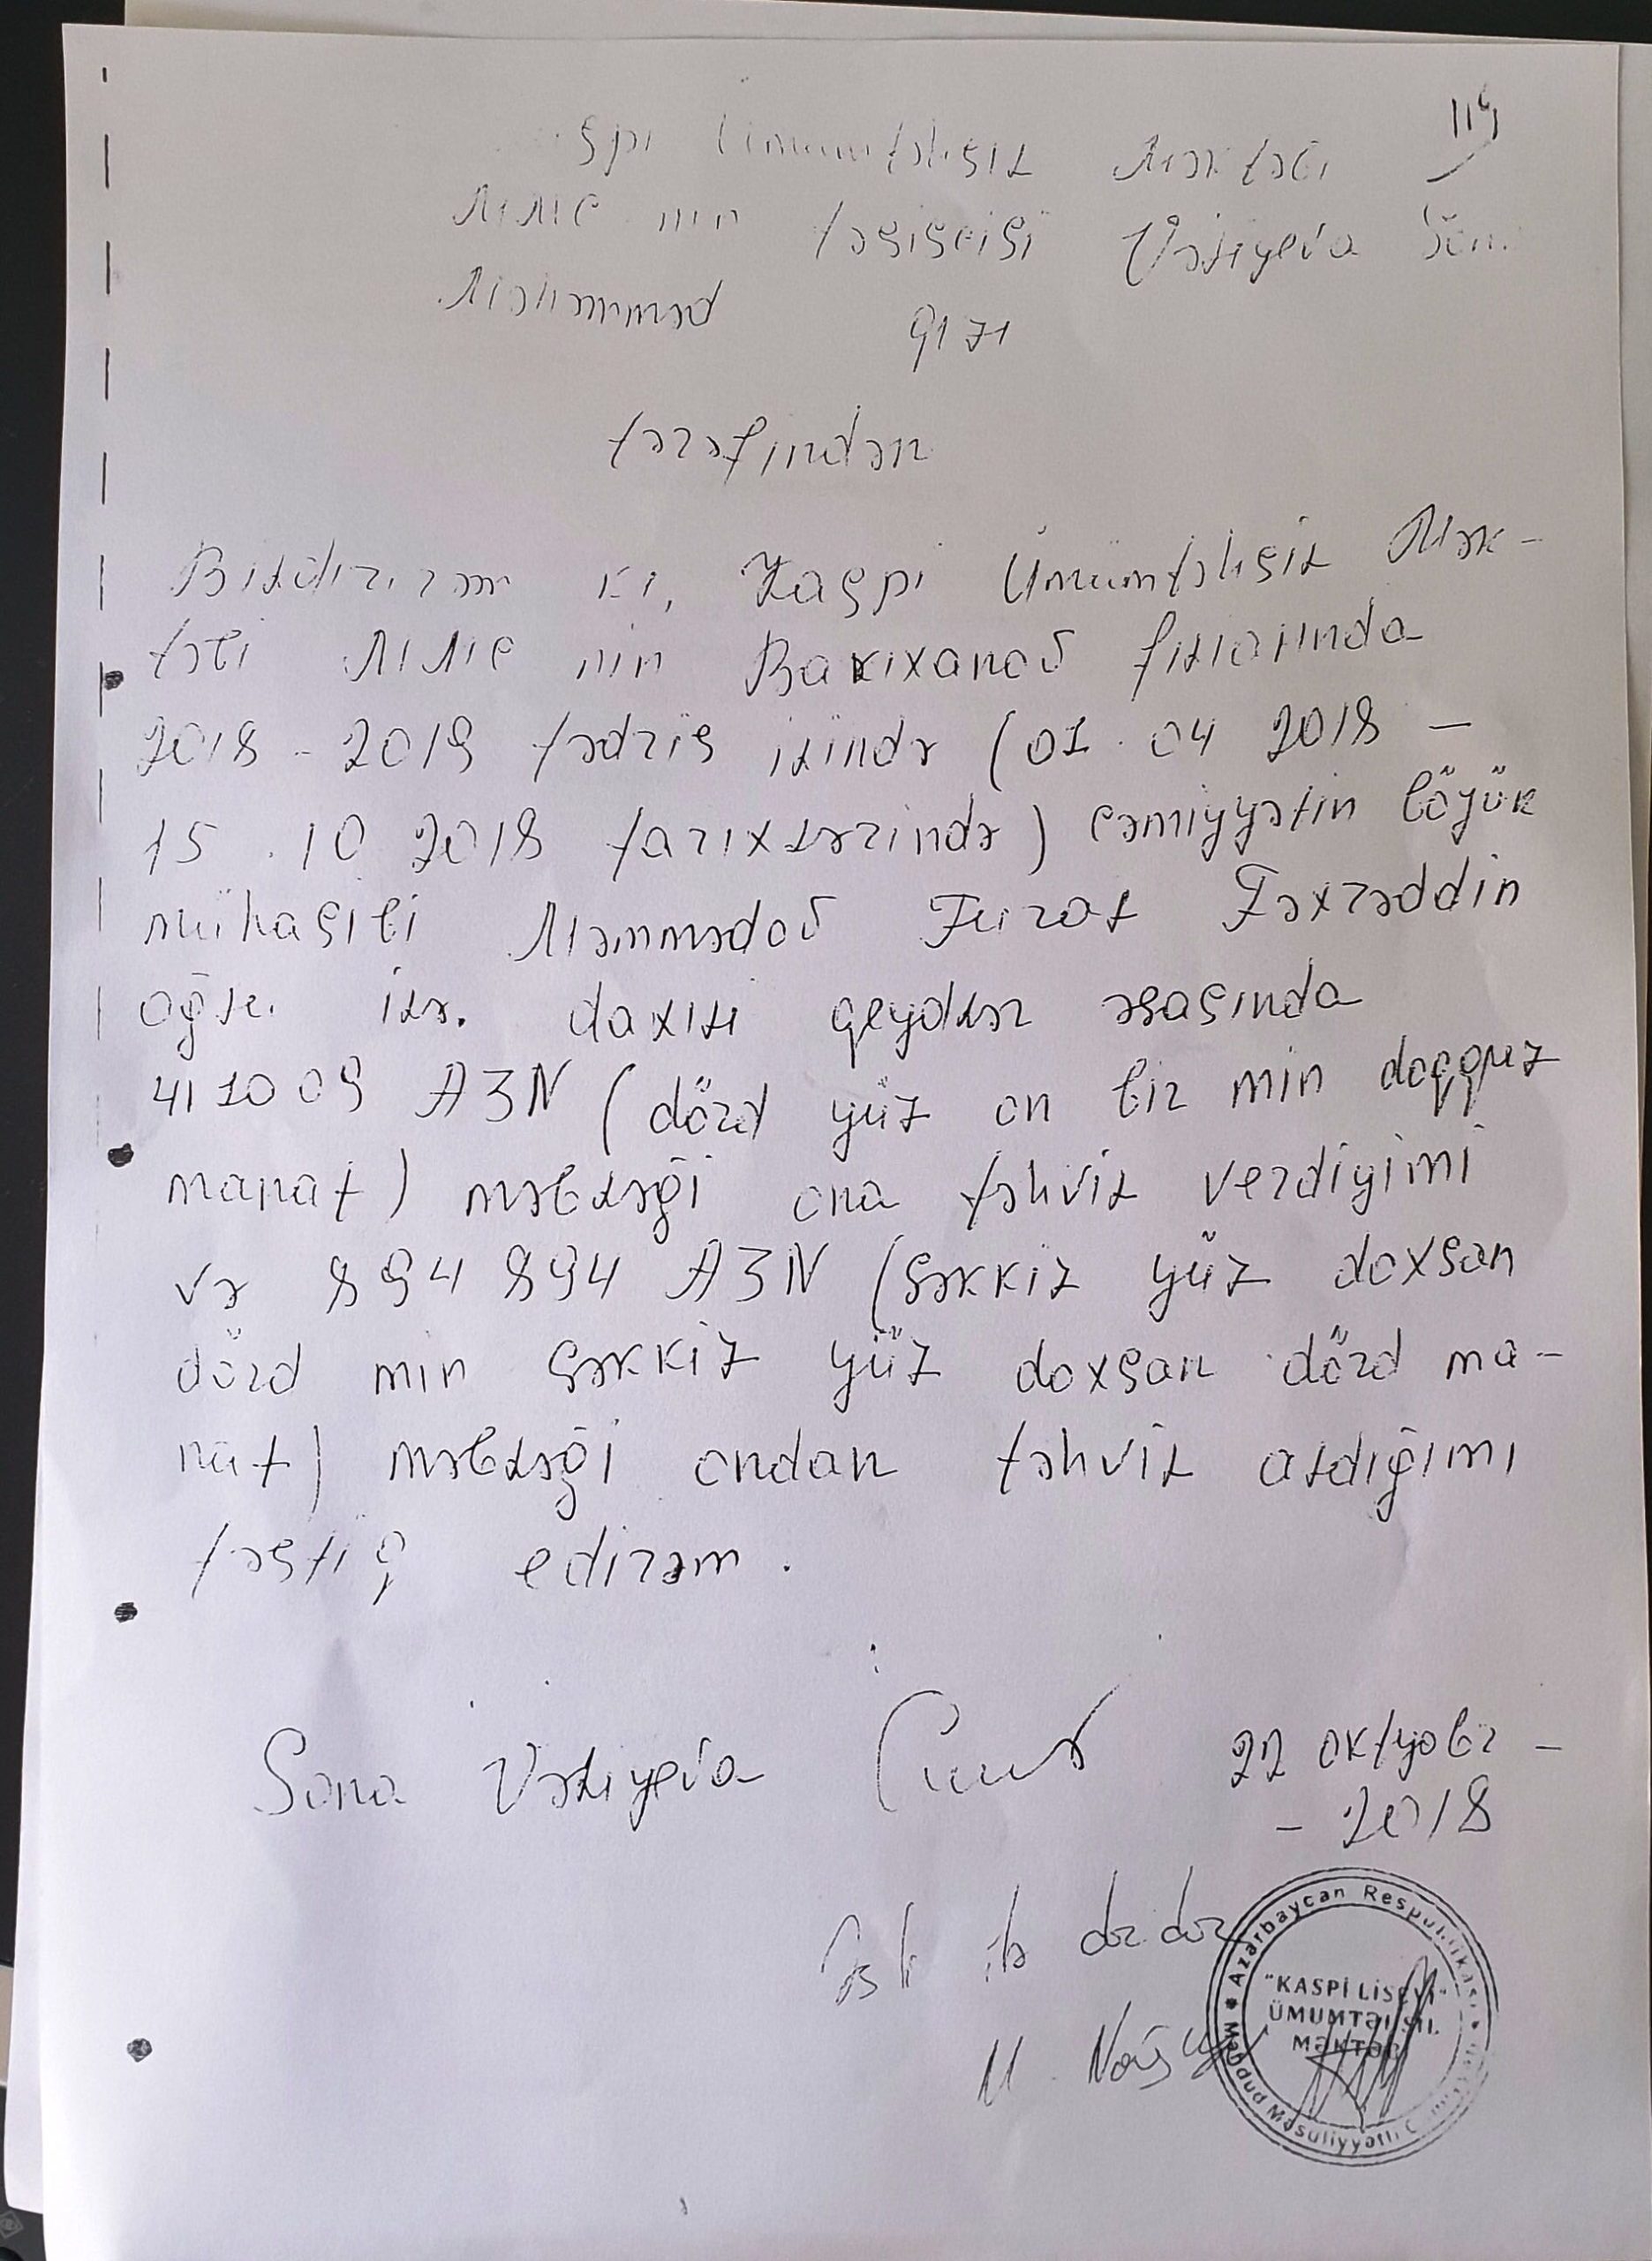 114
spi Ümumtəhsil Məktəbi
MMC nin təsisçisi Vəliyeva Sona
Məhəmməd qızı
tərəfindən
Bildirirəm ki, Kaspi Ümümtəhsil Mək-
təbi MMC nin Bakıxanov filialında
2018 - 2019 tədris ilində (01.04 2018 –
15.10 2018 tarixlərində) cəmiyyətin böyük
mühasibi Məmmədov Fuzat Fəxrəddin
oğlu ilə. daxili qeydlər əsasında
411009 AZN (dörd yüz on bir min doqquz
manat) məbləği ona təhvil verdiyimi
və 894 894 AZN (səkkiz yüz doxsan
dörd min səkkiz yüz doxsan dörd ma-
nat) məbləği ondan təhvil aldığımı
təstiq edirəm.
Sona Vəliyeva 22 oktyabr –
– 2018
Əsli ilə düzdür
Azərbaycan Respublikası
"KASPİ LİSEYİ"
ÜMUMTƏHSİL
MƏKTƏB
Məhdud Məsuliyyətli Cəmiyyəti